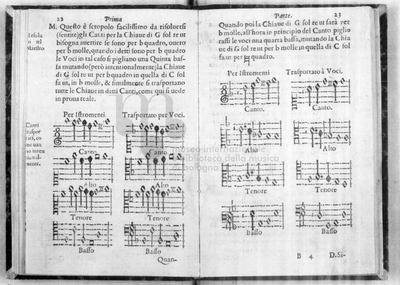 22 Prima
M. Questo è scropolo facilissimo da risoluersi
(sentite) gli Canti per la Chiaue di G sol re ut
bisogna auertire se sono per b quadro, ouero
per b molle, quando i detti sono per b quadro
le Voci in tal caso si pigliano vna Quinta bas-
sa mutando (però intentionalmente) la Chiaue
di G sol re ut per b quadro in quella di C sol
fa ut, in b molle, & similmente si trasportano
tutte le Chiaue in detti Canti, come qui si vede
in prova reale.
Canti
traspor
tati, co
Per Istromenti Trasportato per Voci.
Canto Canto.
Alto Alto
Tenore Tenore
Basso Basso
Quan-
Parte. 23
Quando poi la Chiaue di G sol re ut sarà per
b molle, all'hora in principio del Canto piglia
rassi le voci vna quarta bassa, mutando la Chia
ue di G sol re ut per b molle in quella di C sol
fa ut per b quadro.
Per Istromenti Trasportato à Voci.
Canto. Canto.
Alto Alto
Tenore Tenore
Basso Basso
B 4 D. Si-
museo internazionale
biblioteca della musica
bologna